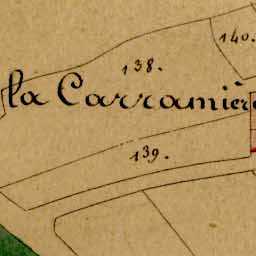 140.
138.
la Carramière
139.